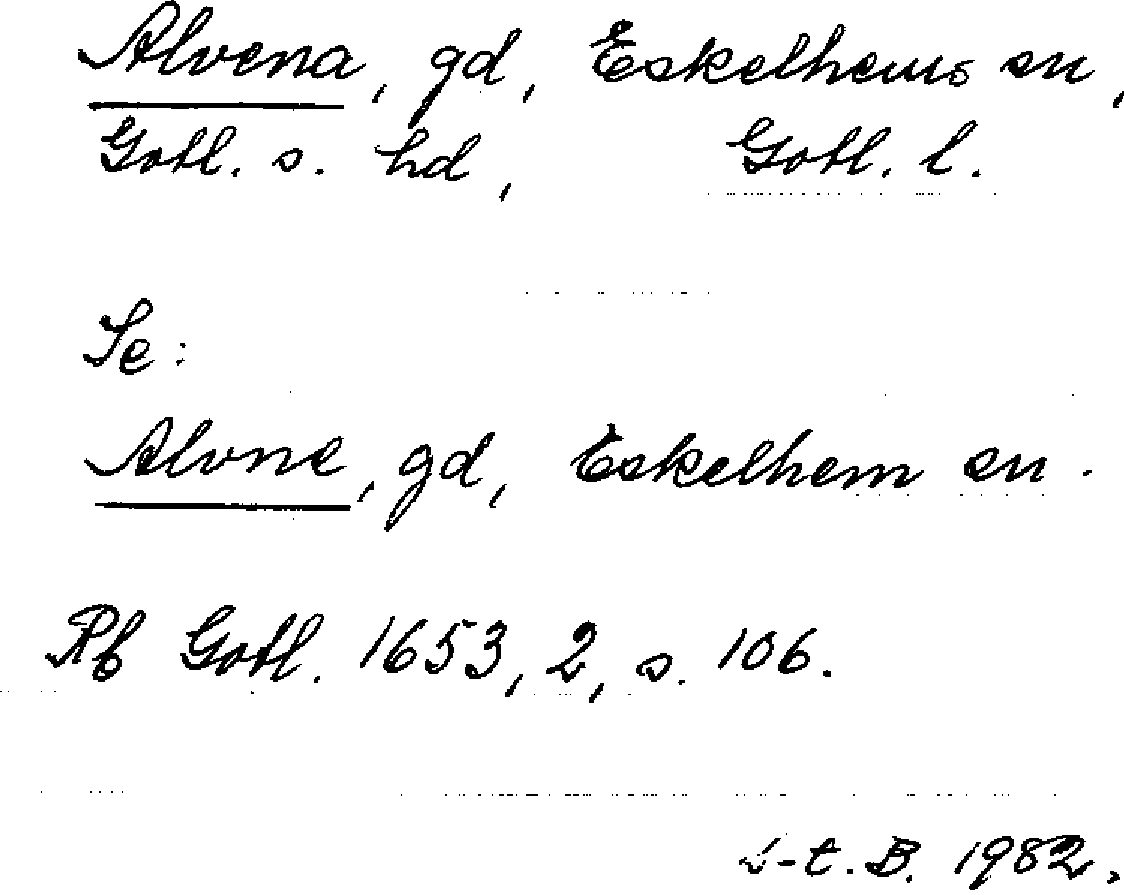 Alvena, gd, Eskelhems sn,
Gotl. s. hd, Gotl. l.
Se:
Alvne, gd, Eskelhem sn.
Rb Gotl. 1653, 2, s. 106.
t. B. 1982.